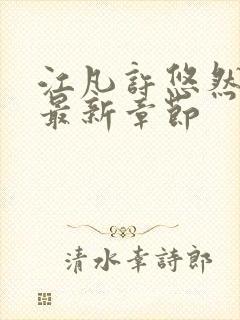 江凡許悠然
最新章節
清水幸詩郎